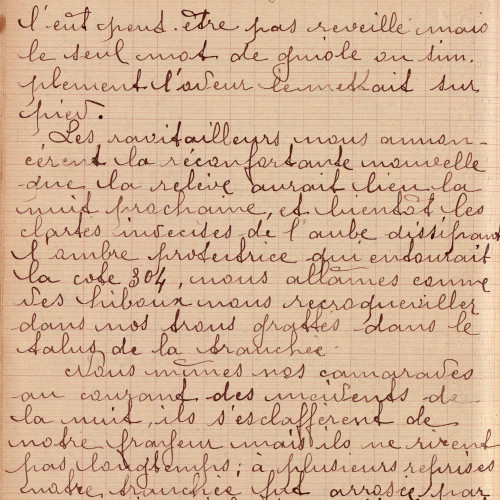 l'eût peut-être pas reveillé mais
le seul mot de gniole ou sim-
plement l'odeur le mettait sur
pied.
Les ravitailleurs nous annon-
cèrent la réconfortante nouvelle
que la relève aurait lieu la
nuit prochaine, et bientôt les
clartes indecises de l'aube dissipant
l'ombre protectrice qui entourait
la cote 304, nous allâmes comme
des hiboux nous recroqueviller
dans nos trous grattés dans le
talus de la tranchée.
Nous mîmes nos camarades
au courant des incidents de
la nuit, ils s'esclafferent de
notre frayeur mais ils ne rirent
pas longtemps; à plusieurs reprises
notre tranchée fut arrosée par